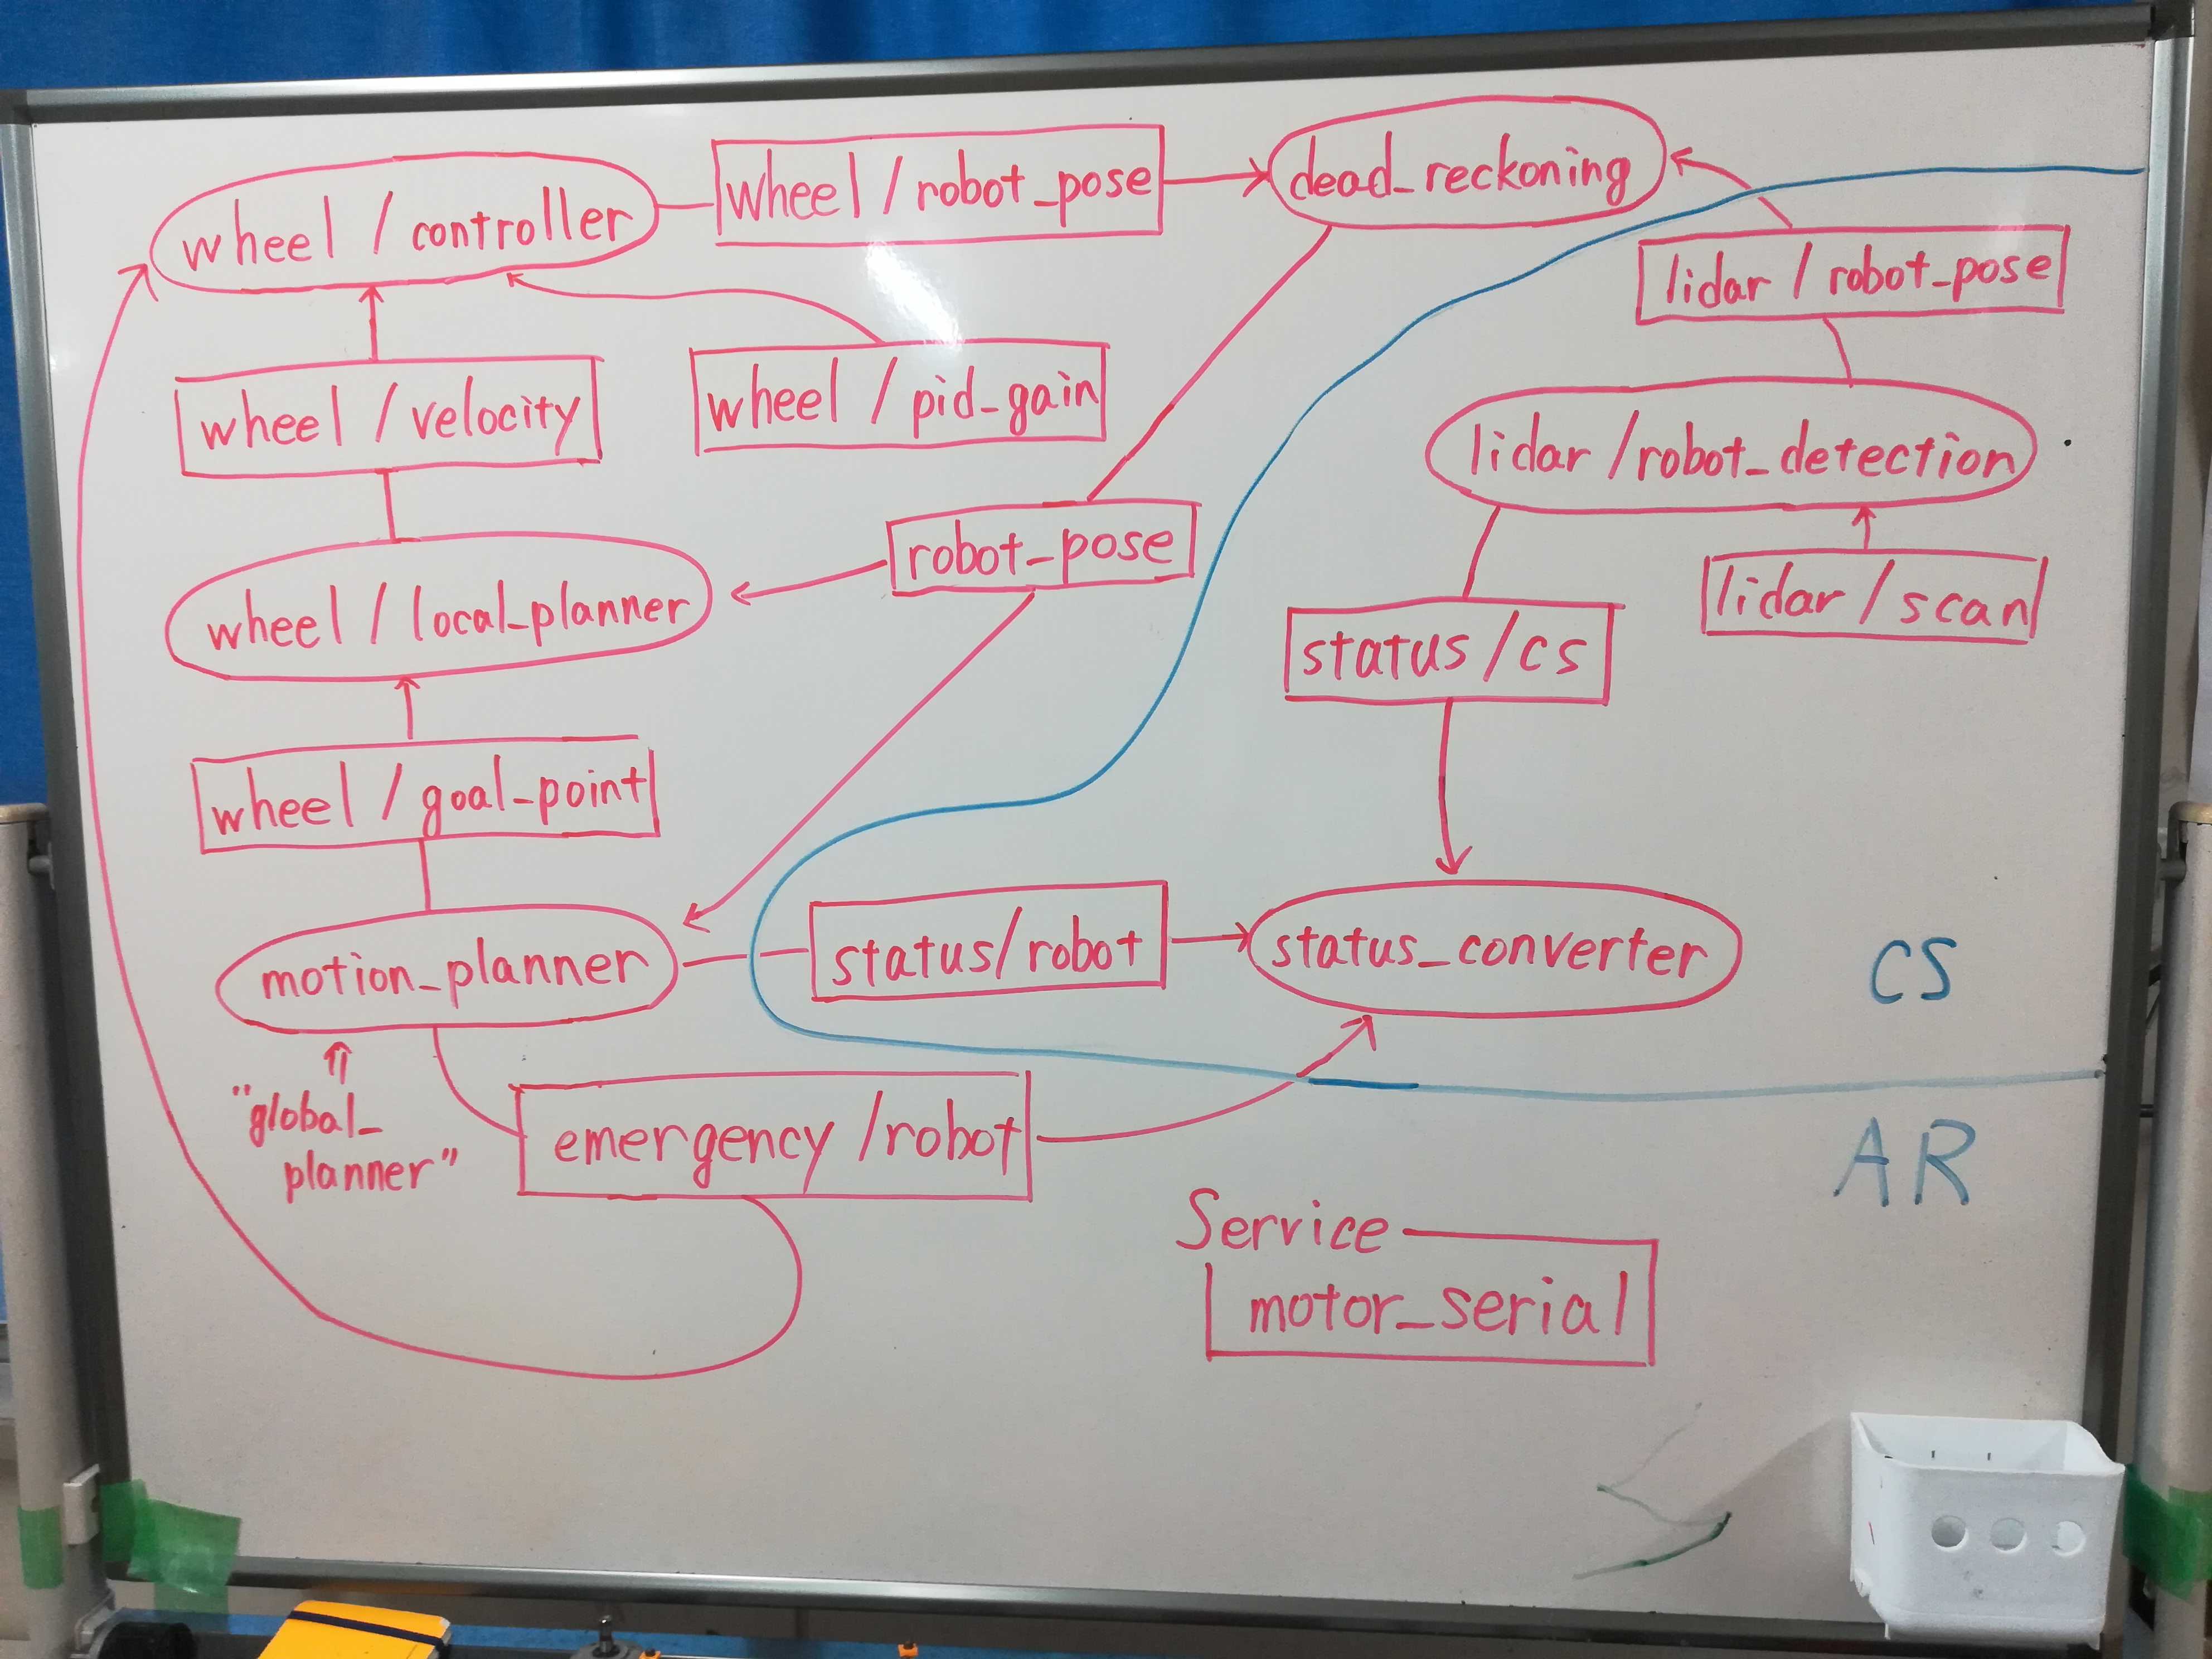 wheel / controller
wheel / robot_pose
dead_reckoning
lidar / robot_pose
wheel / velocity
wheel / pid_gain
lidar / robot_detection
robot_pose
lidar / scan
wheel / local_planner
status / cs
wheel / goal_point
motion_planner
status/robot
status_converter
CS
"global_
planner"
emergency /robot
AR
Service
motor_serial